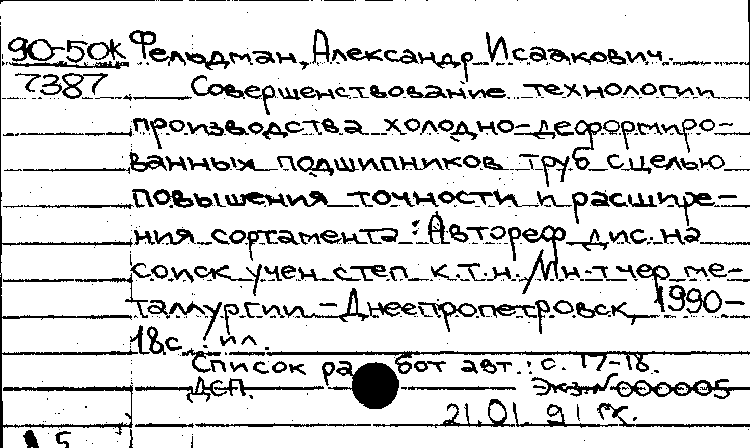 90-50К Фельдман, Александр Исаакович.
7387 Совершенствование технологии
производства холодно-деформиро-
ванных подшипников труб с целью
повышения точности и расшире-
ния сортамента : Автореф дис. на
соиск учен степ к.т.н. /Ин-т чер ме-
таллургии - Днепропетровск, 1990-
18с. : ил.
Список работ авт.: с. 17-18.
ДСП. Экз. N 000005
21.01.91